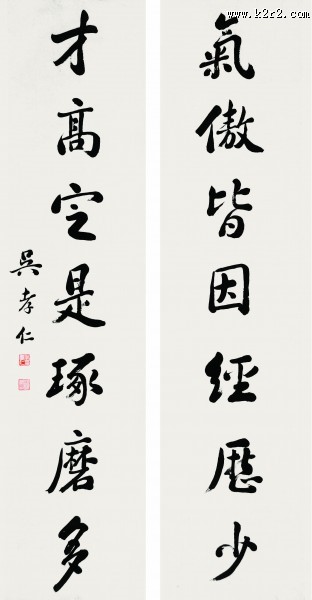 www.k2r2.com
氣傲皆因經歷少
才高定是琢磨多
吳孝仁